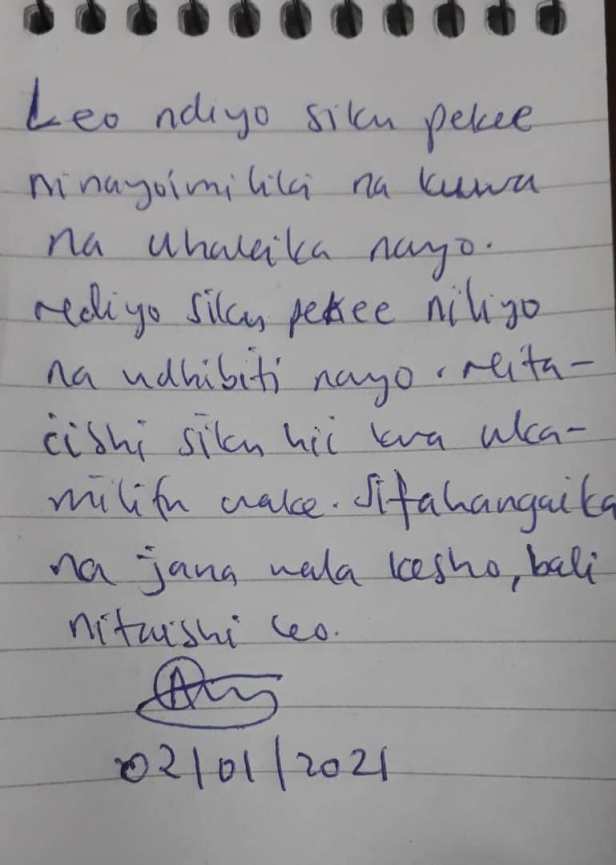 Leo ndiyo siku pekee
ninayoimiliki na kuwa
na uhakika nayo.
ndiyo siku pekee niliyo
na udhibiti nayo. nita-
ishi siku hii kwa uka-
milifu wake. Sitahangaika
na jana wala kesho, bali
nitaishi leo.
02/01/2021